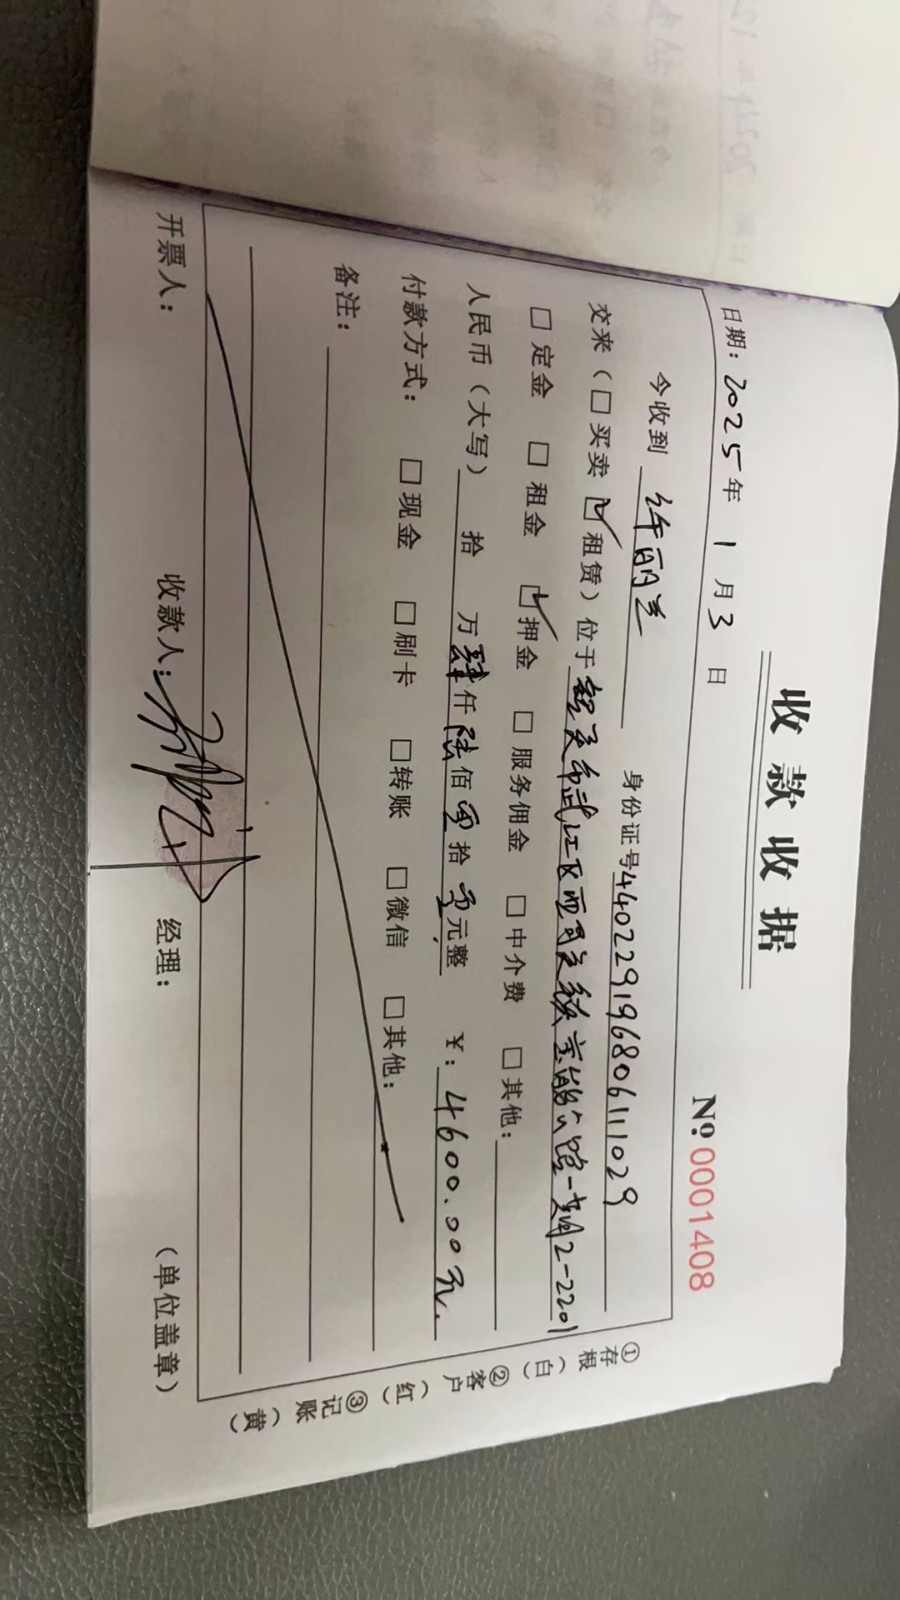 收款收据
№ 0001408
日期：2025年 1 月 3 日
今收到 许丽兰 身份证号 440229196806111029
交来（□买卖 ☑租赁）位于 韶关市武江区西 保利公馆一期2-2201
□定金 □租金 ☑押金 □服务佣金 □中介费 □其他：
人民币（大写） 拾 万 肆 仟 陆 佰 零 拾 零 元整 ￥：4600.00元.
付款方式： □现金 □刷卡 □转账 □微信 □其他：
备注：
开票人： 收款人： 经理： （单位盖章）
①存根（白）②客户（红）③记账（黄）